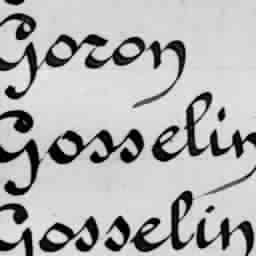 Goron
Gosselin
Gosselin